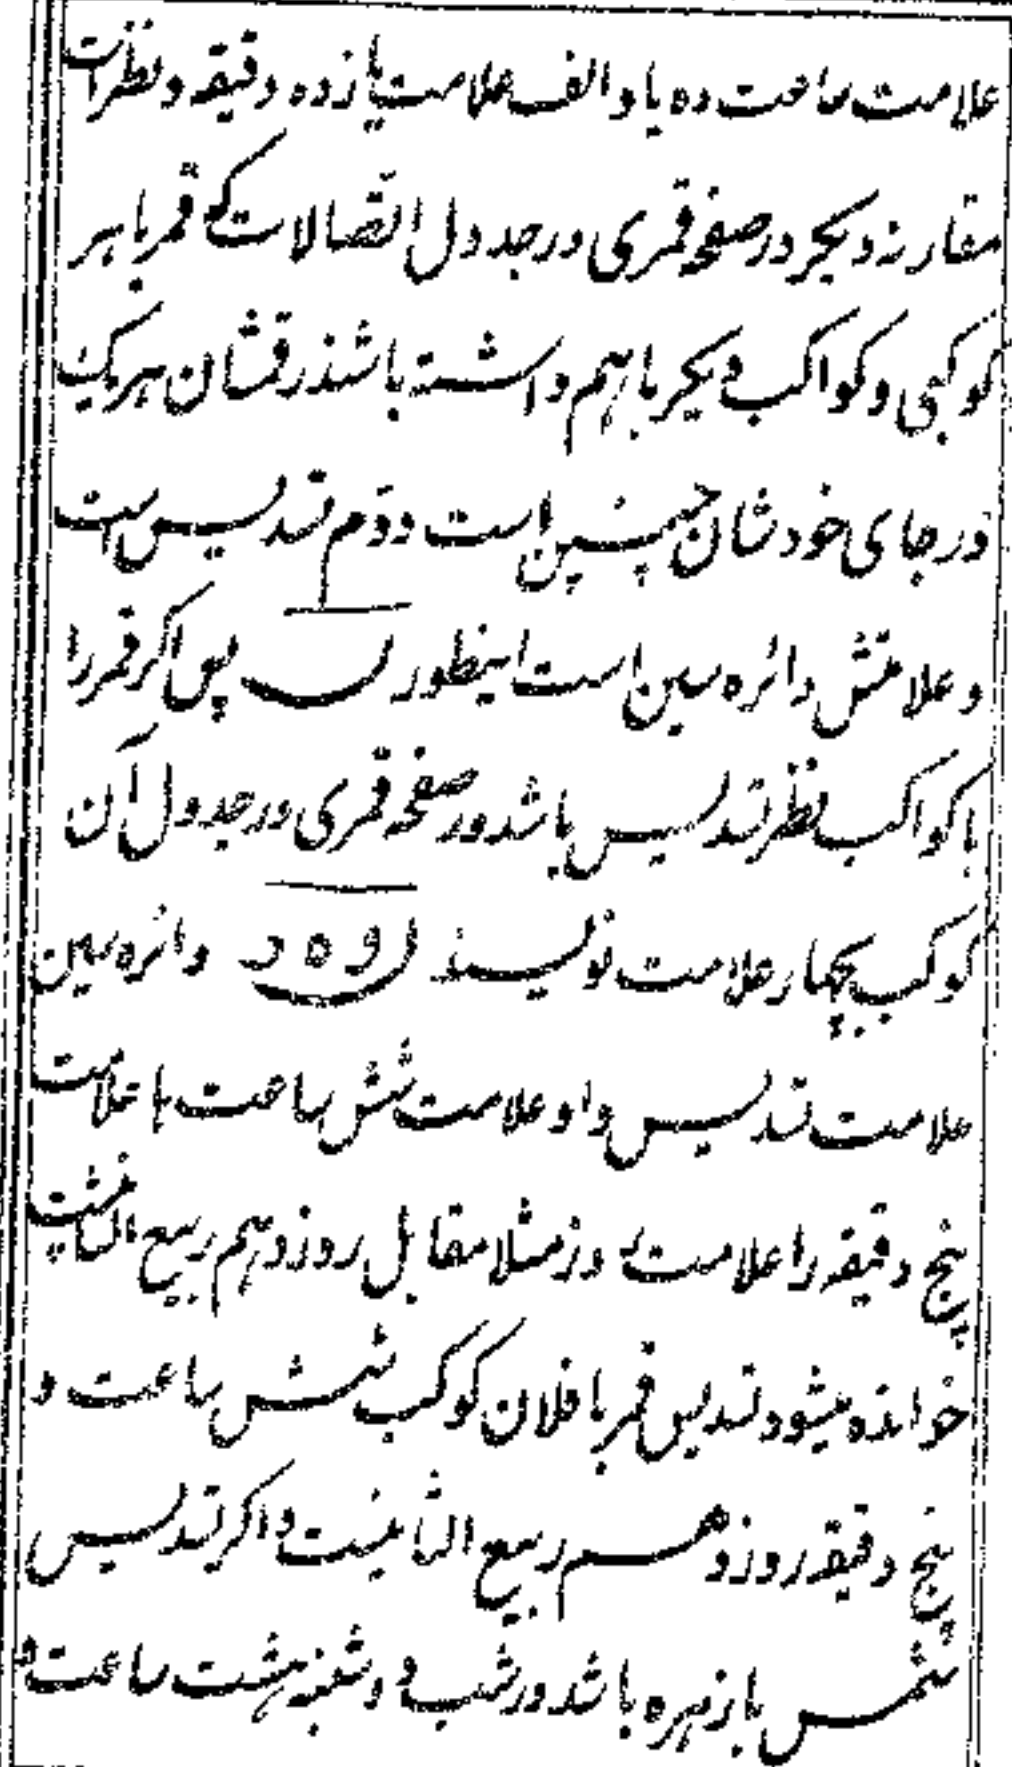 علامت ساعت ده یا و الف علامت یازده دقیقه و نظرات
مقارنه دیگر در صفحه قمری در جدول اتّصالات که قمر با هر
کوکبی و کواکب دیگر باهم داشته باشند رقمشان هر یک
در جای خودشان چنین است دوّم تسدیس است
و علامتش دائره سین است اینطور س پس اگر قمر را
با کواکب نظر تسدیس باشد در صفحه قمری در جدول آن
کوکب بچهار علامت نویسند س و ه د دائره سین
علامت تسدیس واو علامت شش ساعت ها علامت
پنج دقیقه را علامت روز مثلا مقابل روز دهم ربیع الثانیست
خوانده میشود تسدیس قمر با فلان کوکب شش ساعت و
پنج دقیقه روز دهم ربیع الثانیست و اگر تسدیس
شمس با زهره باشد در شب دوشنبه هشت ساعت و